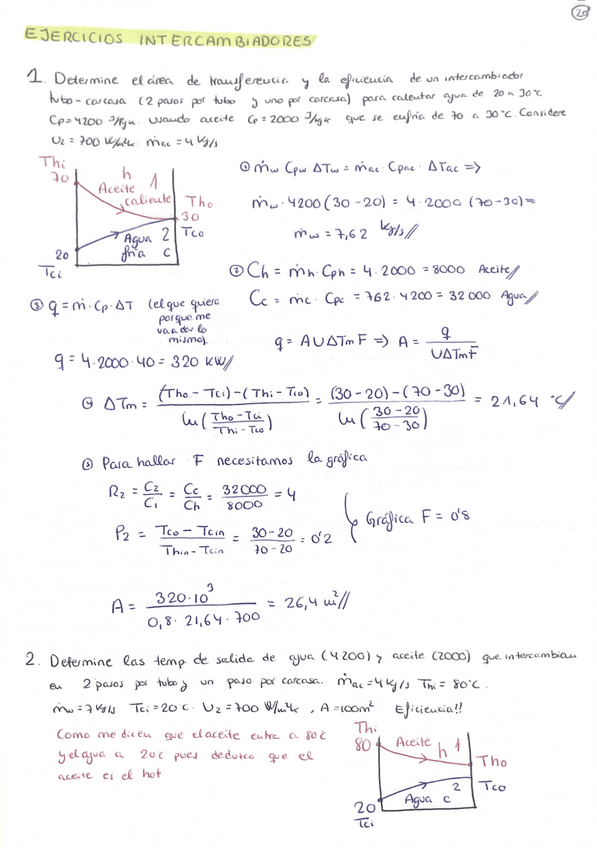 20
EJERCICIOS INTERCAMBIADORES
1. Determine el área de transferencia y la eficiencia de un intercambiador
tubo-carcasa (2 pasos por tubo y uno por carcasa) para calentar agua de 20 a 30°C
Cp=4200 J/kgK usando aceite Cp=2000 J/kgK que se enfría de 70 a 30°C. Considere
U2=700 W/m²K mac=4 kg/s
Thi
70
h
Aceite 1
caliente
Tho
30
Tco
Agua 2
fría c
20
Tci
① ṁw Cpw ΔTw = ṁac · Cpac · ΔTac =>
ṁw · 4200 (30-20) = 4·2000 (70-30) =>
ṁw = 7,62 kg/s//
② Ch = ṁh · Cph = 4·2000 = 8000 Aceite//
Cc = ṁc · Cpc = 762·4200 = 32000 Agua//
③ q = ṁ·Cp·ΔT (el que quiera
porque me
va a dar lo
mismo).
q = 4·2000·40 = 320 KW//
q = A U ΔTm F => A = q / UΔTmF
④ ΔTm = (Tho-Tci)-(Thi-Tco) / ln(Tho-Tci / Thi-Tco) = (30-20)-(70-30) / ln(30-20 / 70-30) = 21,64 °C//
⑤ Para hallar F necesitamos la gráfica
R2 = C2/C1 = Cc/Ch = 32000/8000 = 4
P2 = Tco-Tcin / Thin-Tcin = 30-20 / 70-20 = 0'2
Gráfica F = 0'8
A = 320·10³ / 0,8·21,64·700 = 26,4 m²//
2. Determine las temp de salida de agua (4200) y aceite (2000) que intercambian
en 2 pasos por tubo y un paso por carcasa. ṁac = 4 kg/s Thi = 80°C.
ṁw = 7 kg/s Tci = 20°C. U2 = 700 W/m²K, A = 100m² Eficiencia!!
Como me dicen que el aceite entra a 80C
y el agua a 20C pues deduzco que el
aceite es el hot
Thi
80
Aceite
h 1
Tho
Tco
Agua c 2
20
Tci